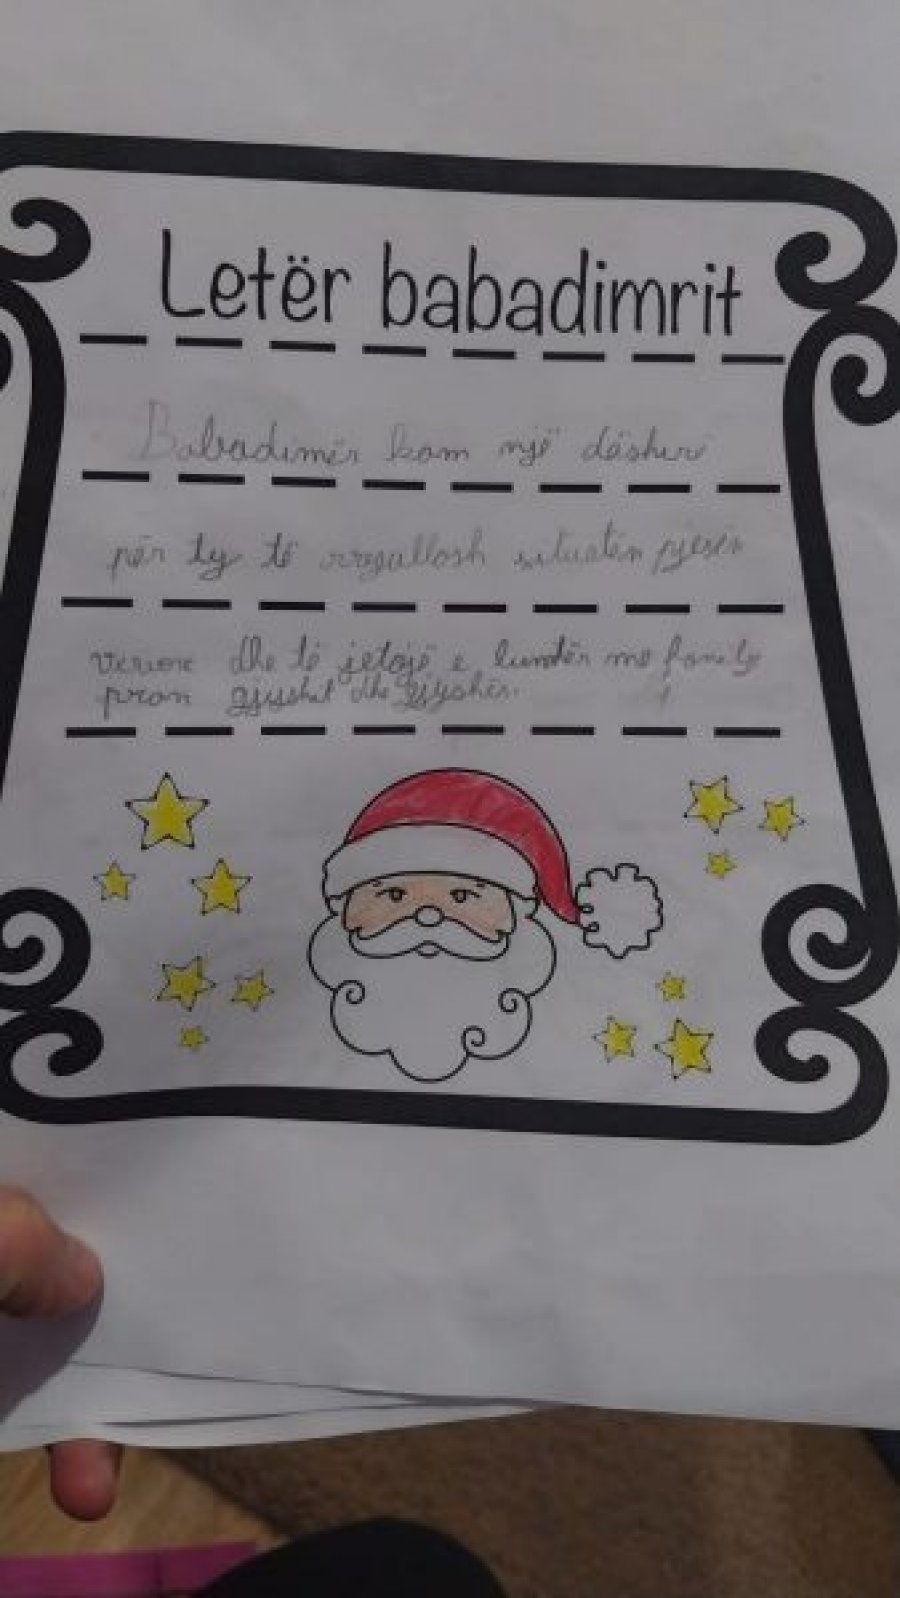 Letër babadimrit
Babadimër kam një dëshirë
për ty të rregullosh situatën pjesën
veriore dhe të jetojë e lumtër me
pran gjyshit dhe gjyshës.